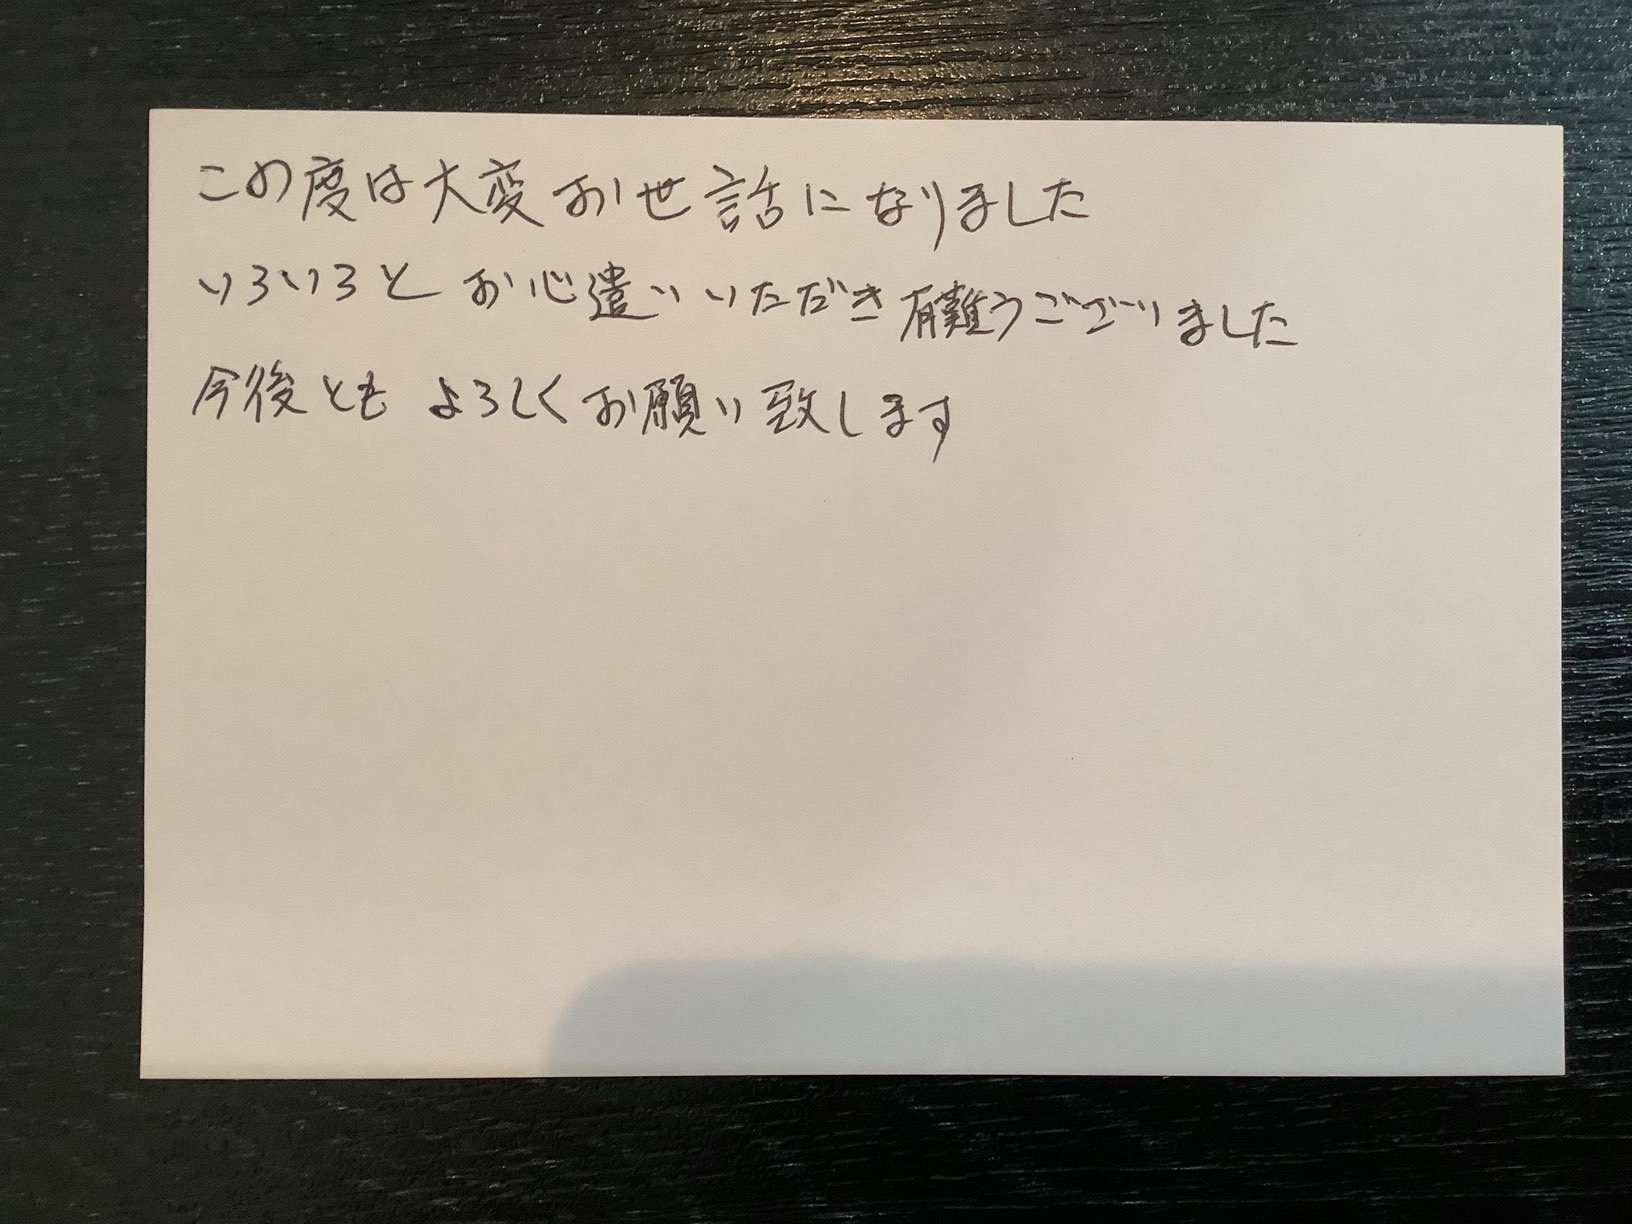 この度は大変お世話になりました
いろいろと お心遣いいただき有難うございました
今後とも よろしくお願い致します